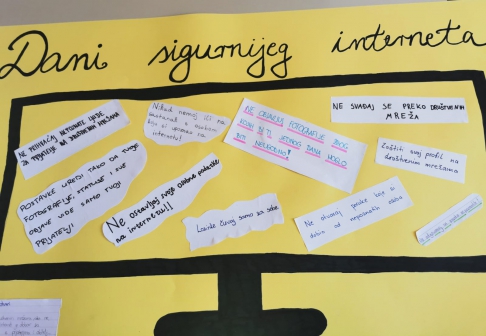 Dani sigurnijeg interneta
NE PRIHVAĆAJ NEPOZNATE LJUDE
ZA PRIJATELJE NA DRUŠTVENIM MREŽAMA
Nikad nemoj ići na
sastanak s osobom
koju si upoznao na
internetu!
NE OBJAVLJUJ FOTOGRAFIJE ZBOG
KOJIH BI TI JEDNOG DANA MOGLO
BITI NEUGODNO!
NE SVAĐAJ SE PREKO DRUŠTVENIH
MREŽA
Zaštiti svoj profil na
društvenim mrežama
POSTAVKE UREDI TAKO DA TVOJE
FOTOGRAFIJE, STATUSE I SVE
OBJAVE VIDE SAMO TVOJI
PRIJATELJI
Ne ostavljaj svoje osobne podatke
na internetu!!
Lozinke čuvaj samo za sebe
Ne otvaraj poruke koje si
dobio od nepoznatih osoba